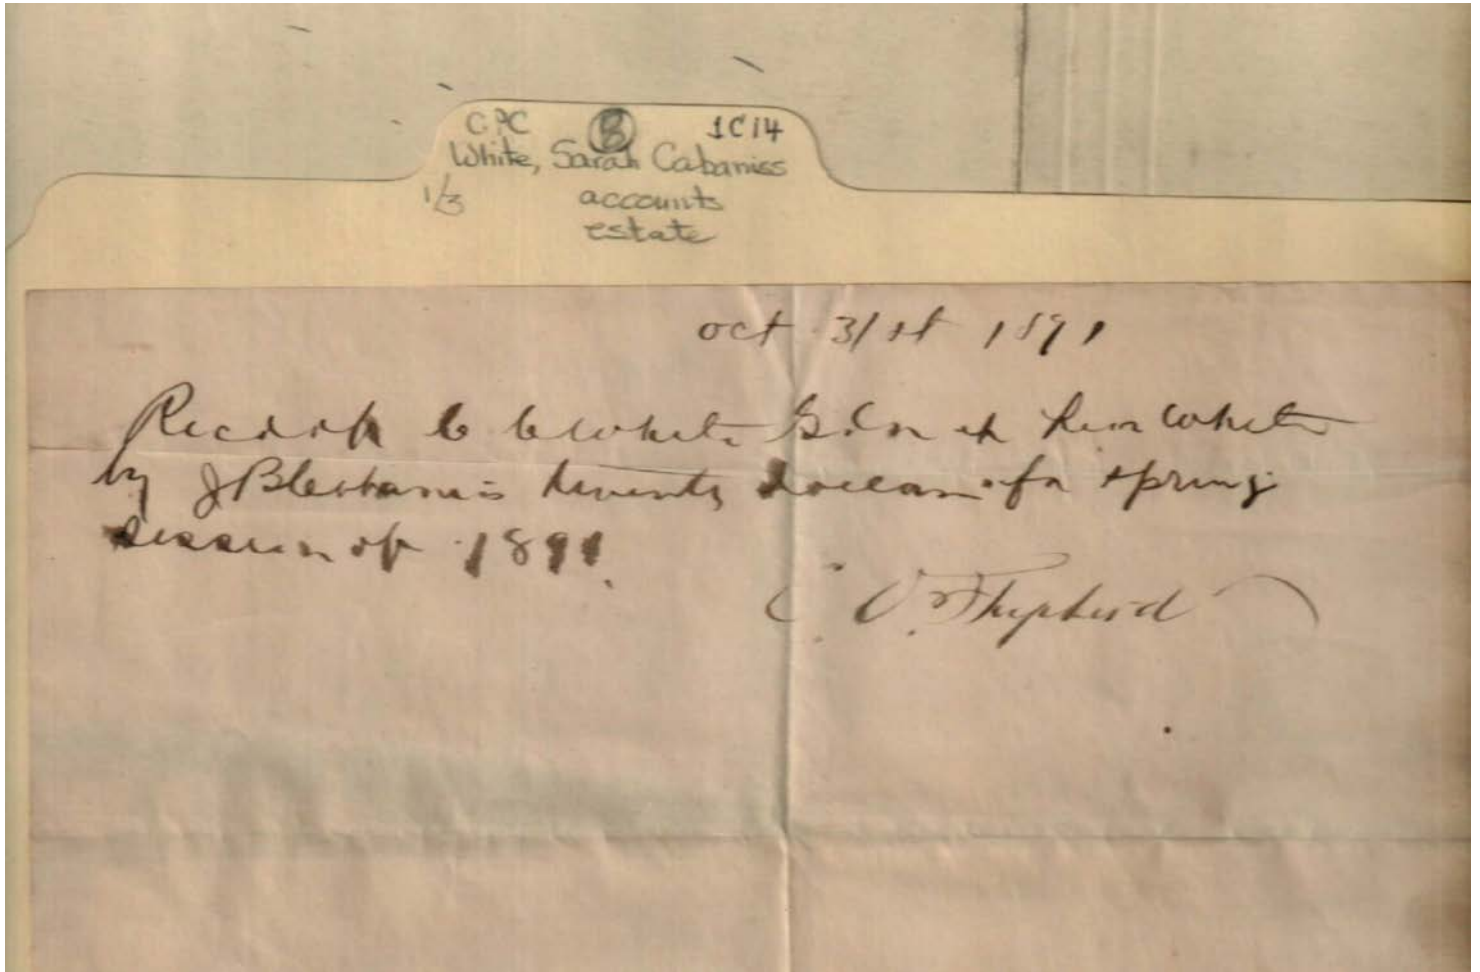 CPC 8 1C14
White, Sarah Cabaniss
1/3 accounts
estate
oct 31st 1891
Recd of C C White Gdn of White
by J B Cabaniss twenty Dollars for spring
session of 1891.
C. O. Shepherd